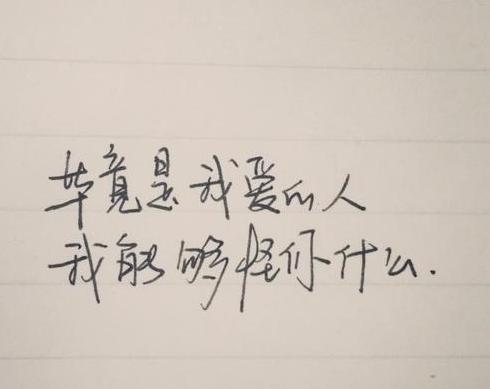 毕竟是我爱的人
我能够怪你什么.